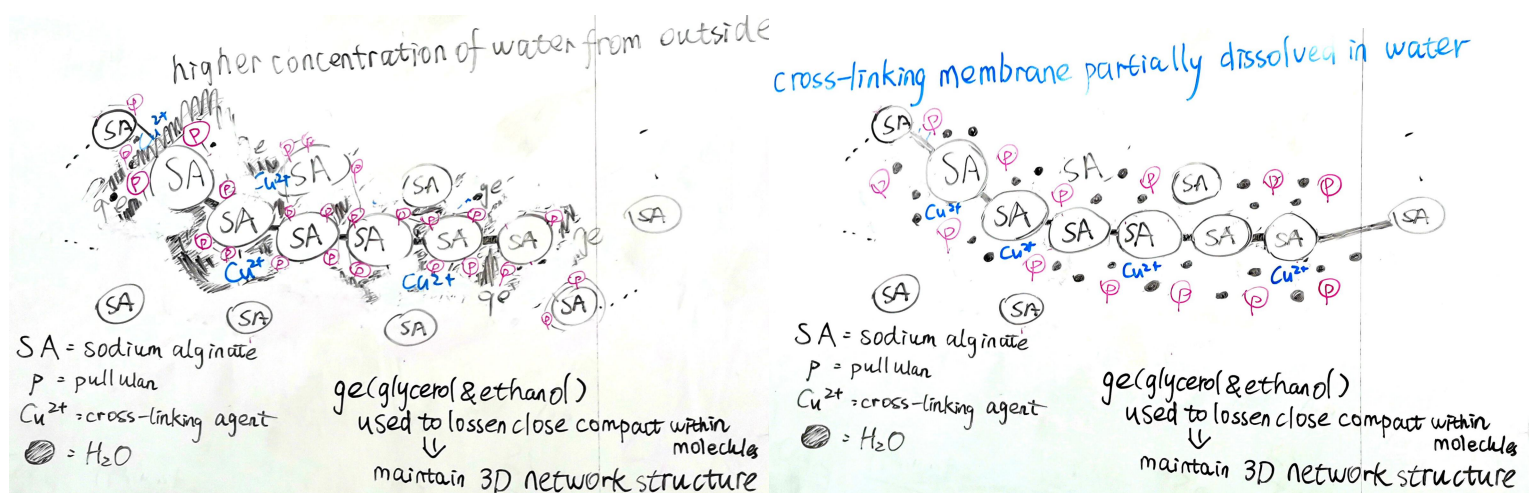 higher concentration of water from outside
SA
P
2+
P
SA
P
P
ge
P
Cu2+
P P
SA
P
SA
ge
SA
P
SA
P
P
SA
P
P
SA
P
SA
P
ge
SA
P
P
Cu2+
P
P
P
Cu2+
P
P
P
ge
P
SA
P
SA
SA
SA
SA = sodium alginate
P = pullulan
Cu2+ = cross-linking agent
= H2O
ge(glycerol & ethanol)
used to lossen close compact within
molecules
maintain 3D network structure
cross-linking membrane partially dissolved in water
SA
P
SA
P
P
SA
P
SA
P
P
P
Cu2+
P
SA
SA
SA
SA
SA
SA
Cu2+
P
Cu2+
Cu2+
P
P
P
P
SA
SA
SA = sodium alginate
P = pullulan
Cu2+ = cross-linking agent
= H2O
ge(glycerol & ethanol)
used to lossen close compact within
molecules
maintain 3D network structure